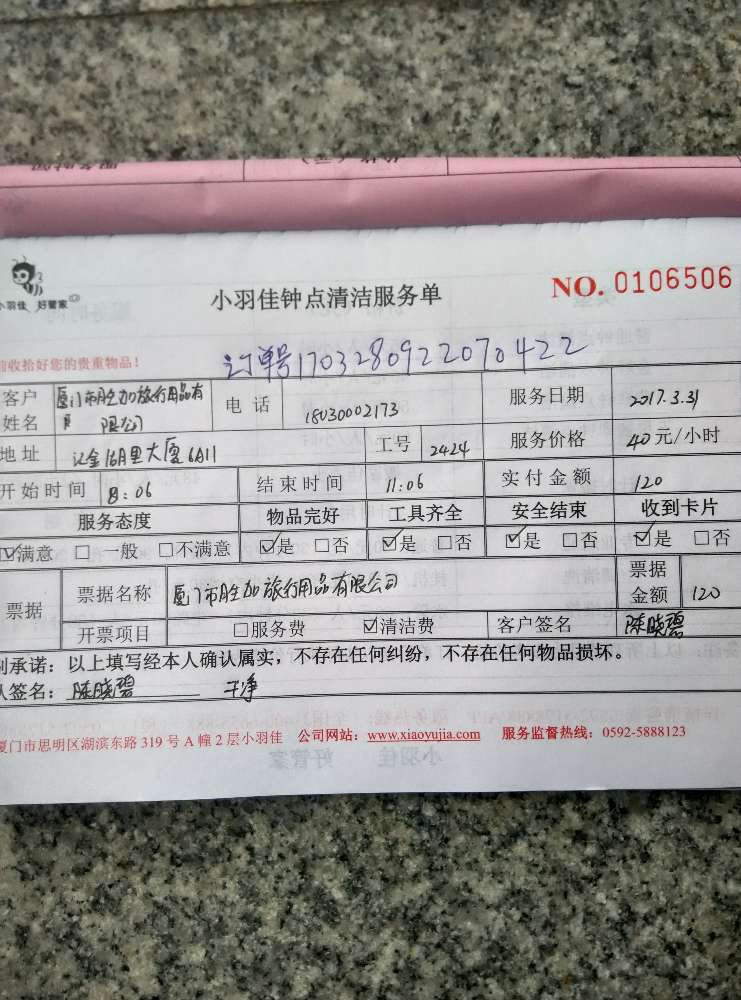 小羽佳 好管家
小羽佳钟点清洁服务单
NO. 0106506
收拾好您的贵重物品!
订单号1703280922070422
客户姓名 厦门市胜加旅行用品有限公司 电话 18030002173 服务日期 2017.3.31
地址 大厦6A11 工号 2424 服务价格 40元/小时
开始时间 8:06 结束时间 11:06 实付金额 120
服务态度 物品完好 工具齐全 安全结束 收到卡片
☑满意 □一般 □不满意 ☑是 □否 ☑是 □否 ☑是 □否 ☑是 □否
票据 票据名称 厦门市胜加旅行用品有限公司 票据金额 120
开票项目 □服务费 ☑清洁费 客户签名 陈晓碧
承诺:以上填写经本人确认属实,不存在任何纠纷,不存在任何物品损坏。
签名:陈晓碧 干净
厦门市思明区湖滨东路319号A幢2层小羽佳 公司网站:www.xiaoyujia.com 服务监督热线:0592-5888123